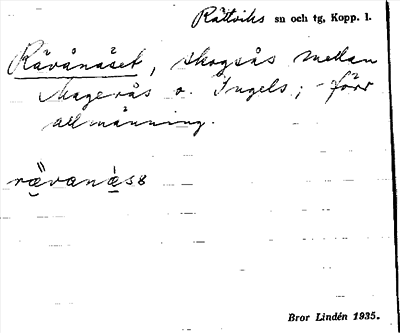 Rättviks sn och tg, Kopp. l.
Rävanäset, skogsås mellan
Magerås o. Ingels; förr
allmänning.
Bror Lindén 1935.